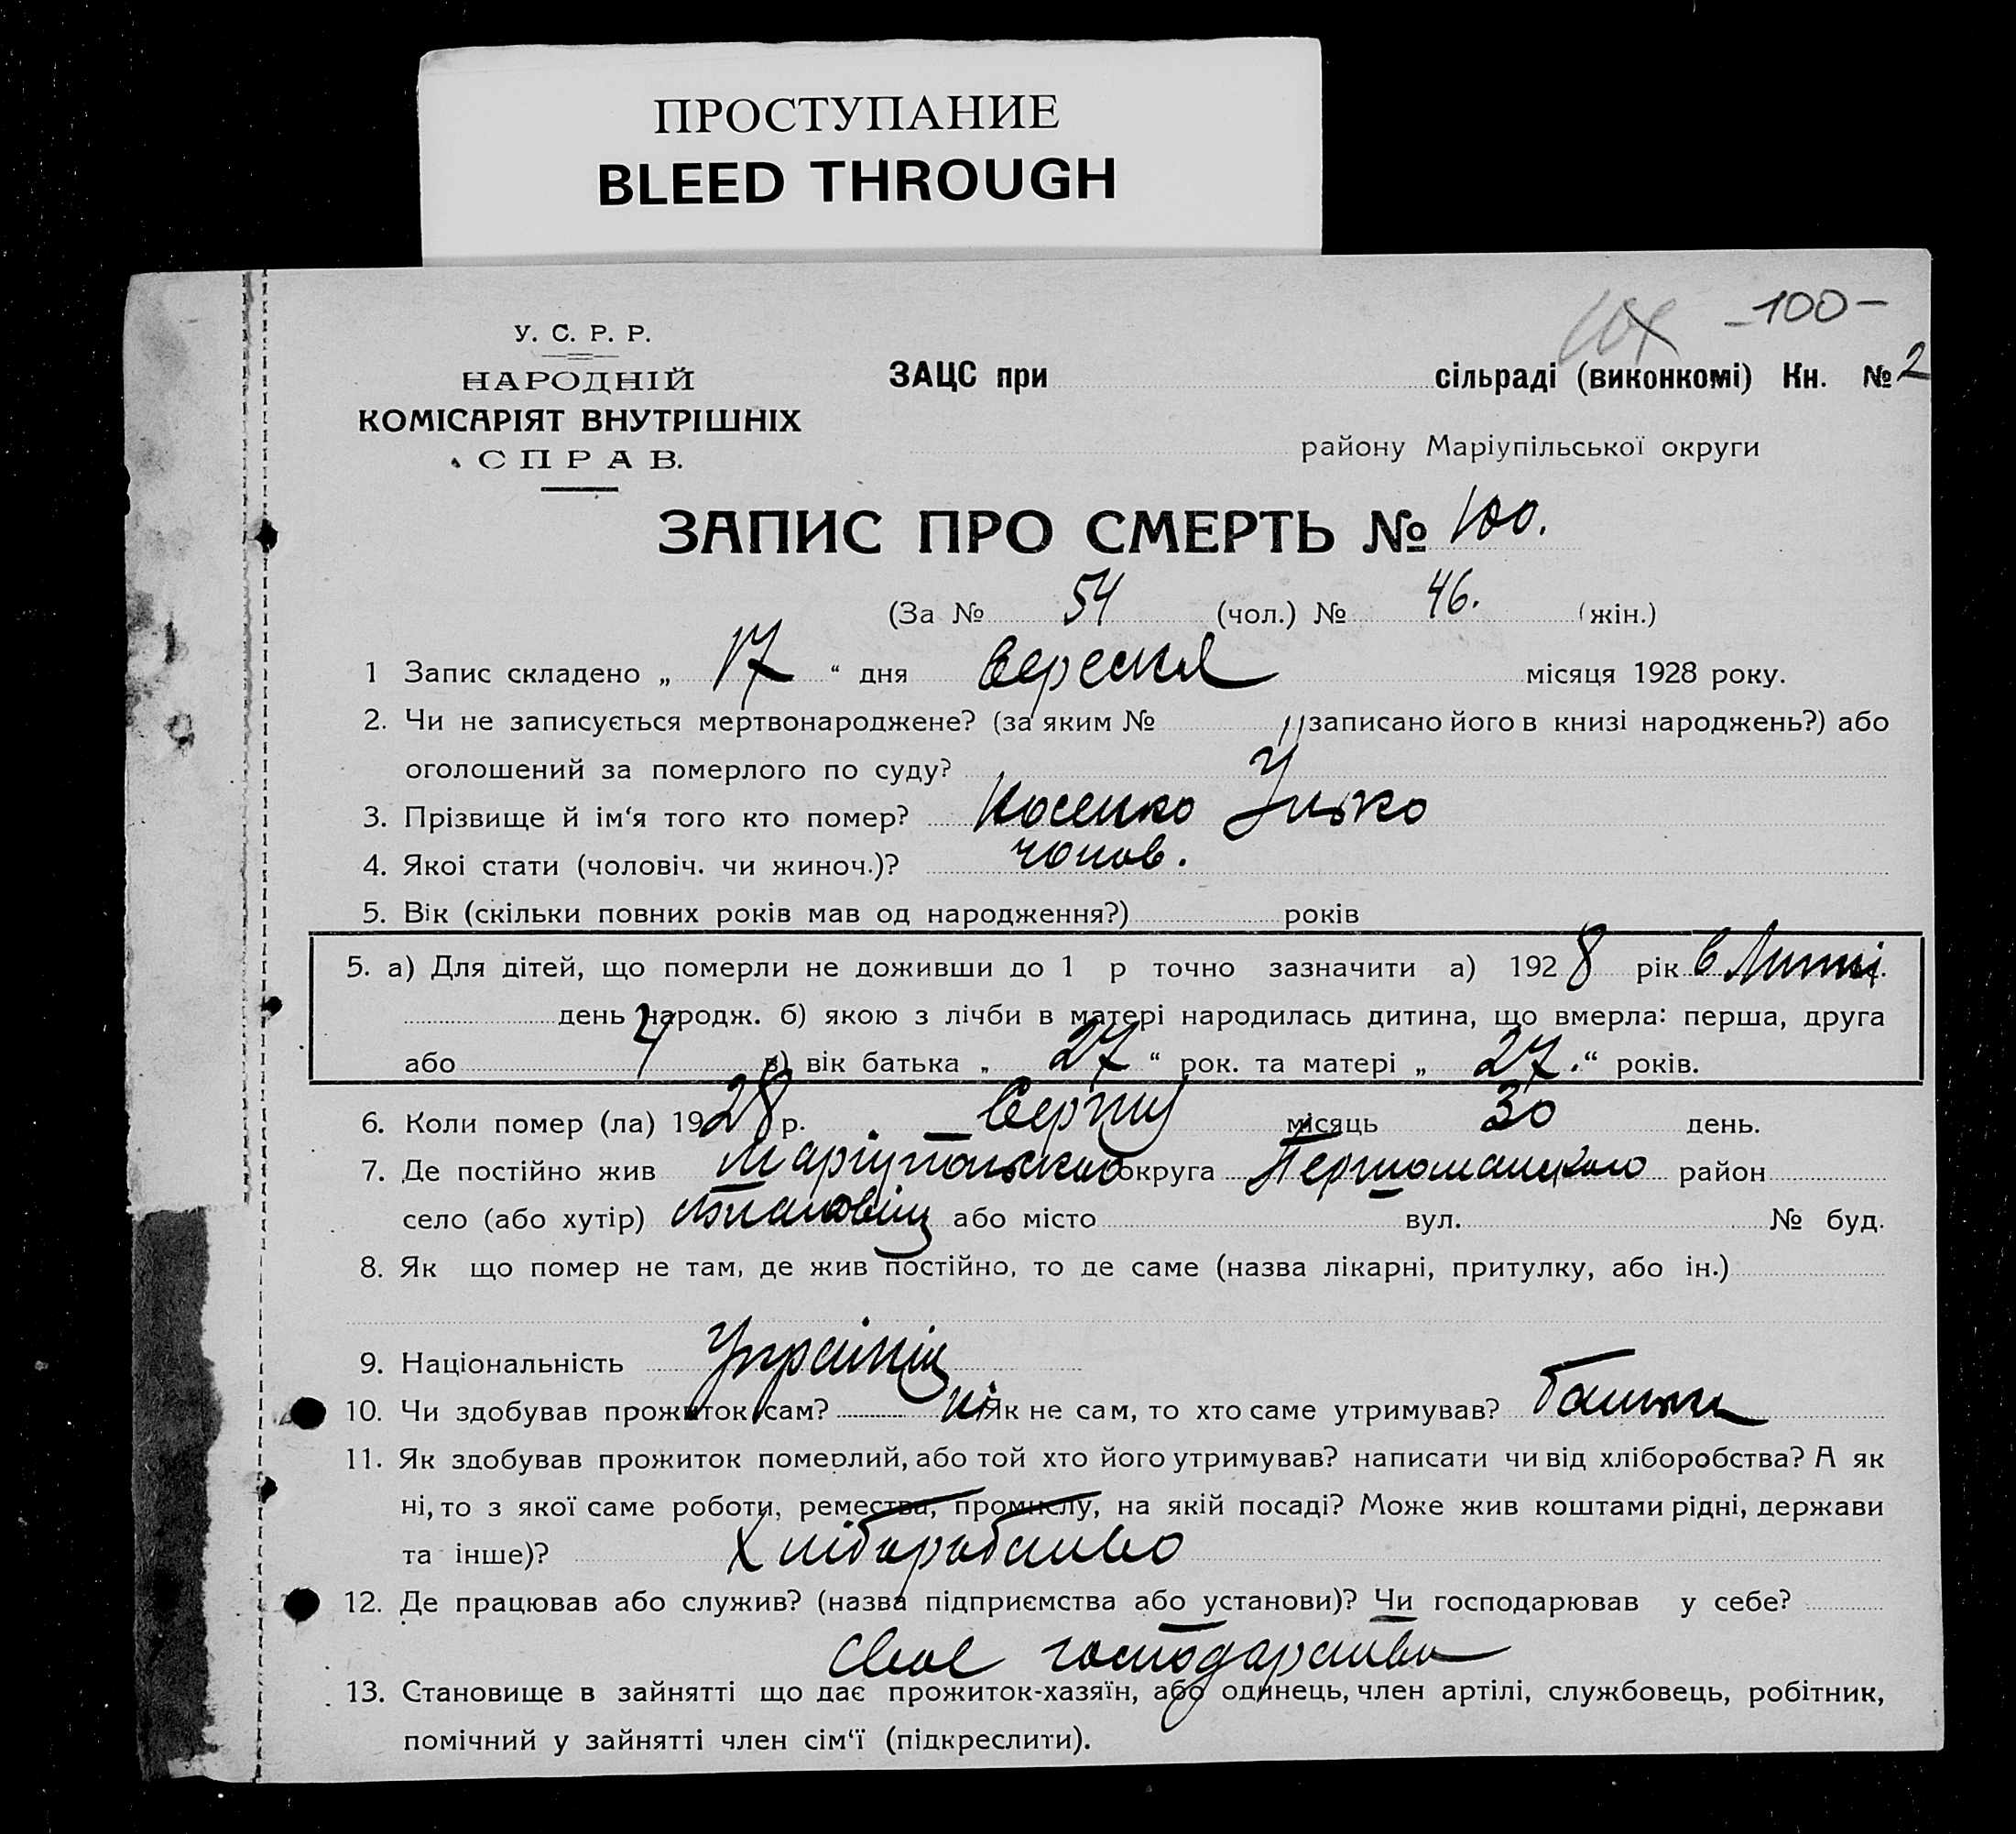 ПРОСТУПАНИЕ
BLEED THROUGH
-100-
У. С. Р. Р.
НАРОДНІЙ
КОМІСАРІЯТ ВНУТРІШНІХ
СПРАВ.
ЗАЦС при сільраді (виконкомі) Кн. № 2
району Маріупільської округи
ЗАПИС ПРО СМЕРТЬ № 100.
(За № 54 (чол.) № 46. (жін.)
1 Запис складено „ 17 “ дня вересня місяця 1928 року.
2. Чи не записується мертвонароджене? (за яким № записано його в книзі народжень?) або
оголошений за померлого по суду?
3. Прізвище й ім‘я того кто помер? Носенко
4. Якоі стати (чоловіч. чи жиноч.)? чолов.
5. Вік (скільки повних років мав од народження?) років
5. а) Для дітей, що померли не доживши до 1 р точно зазначити а) 1928 рік в
день народж. б) якою з лічби в матері народилась дитина, що вмерла: перша, друга
або 4 в) вік батька „ 27 “ рок. та матері „ 27. “ років.
6. Коли помер (ла) 1928 р. Серпня місяць 30 день.
7. Де постійно жив Маріупольської округа Першомайського район
село (або хутір) або місто вул. № буд.
8. Як що помер не там, де жив постійно, то де саме (назва лікарні, притулку, або ін.)
9. Національність Українец
10. Чи здобував прожиток сам? ні Як не сам, то хто саме утримував? батьки
11. Як здобував прожиток померлий, або той хто його утримував? написати чи від хліборобства? А як
ні, то з якої саме роботи, ремества, промислу, на якій посаді? Може жив коштами рідні, держави
та інше)? Хліборобство
12. Де працював або служив? (назва підприємства або установи)? Чи господарював у себе?
Своє господарство
13. Становище в зайнятті що дає прожиток-хазяїн, або одинець, член артілі, службовець, робітник,
помічний у зайнятті член сім‘ї (підкреслити).